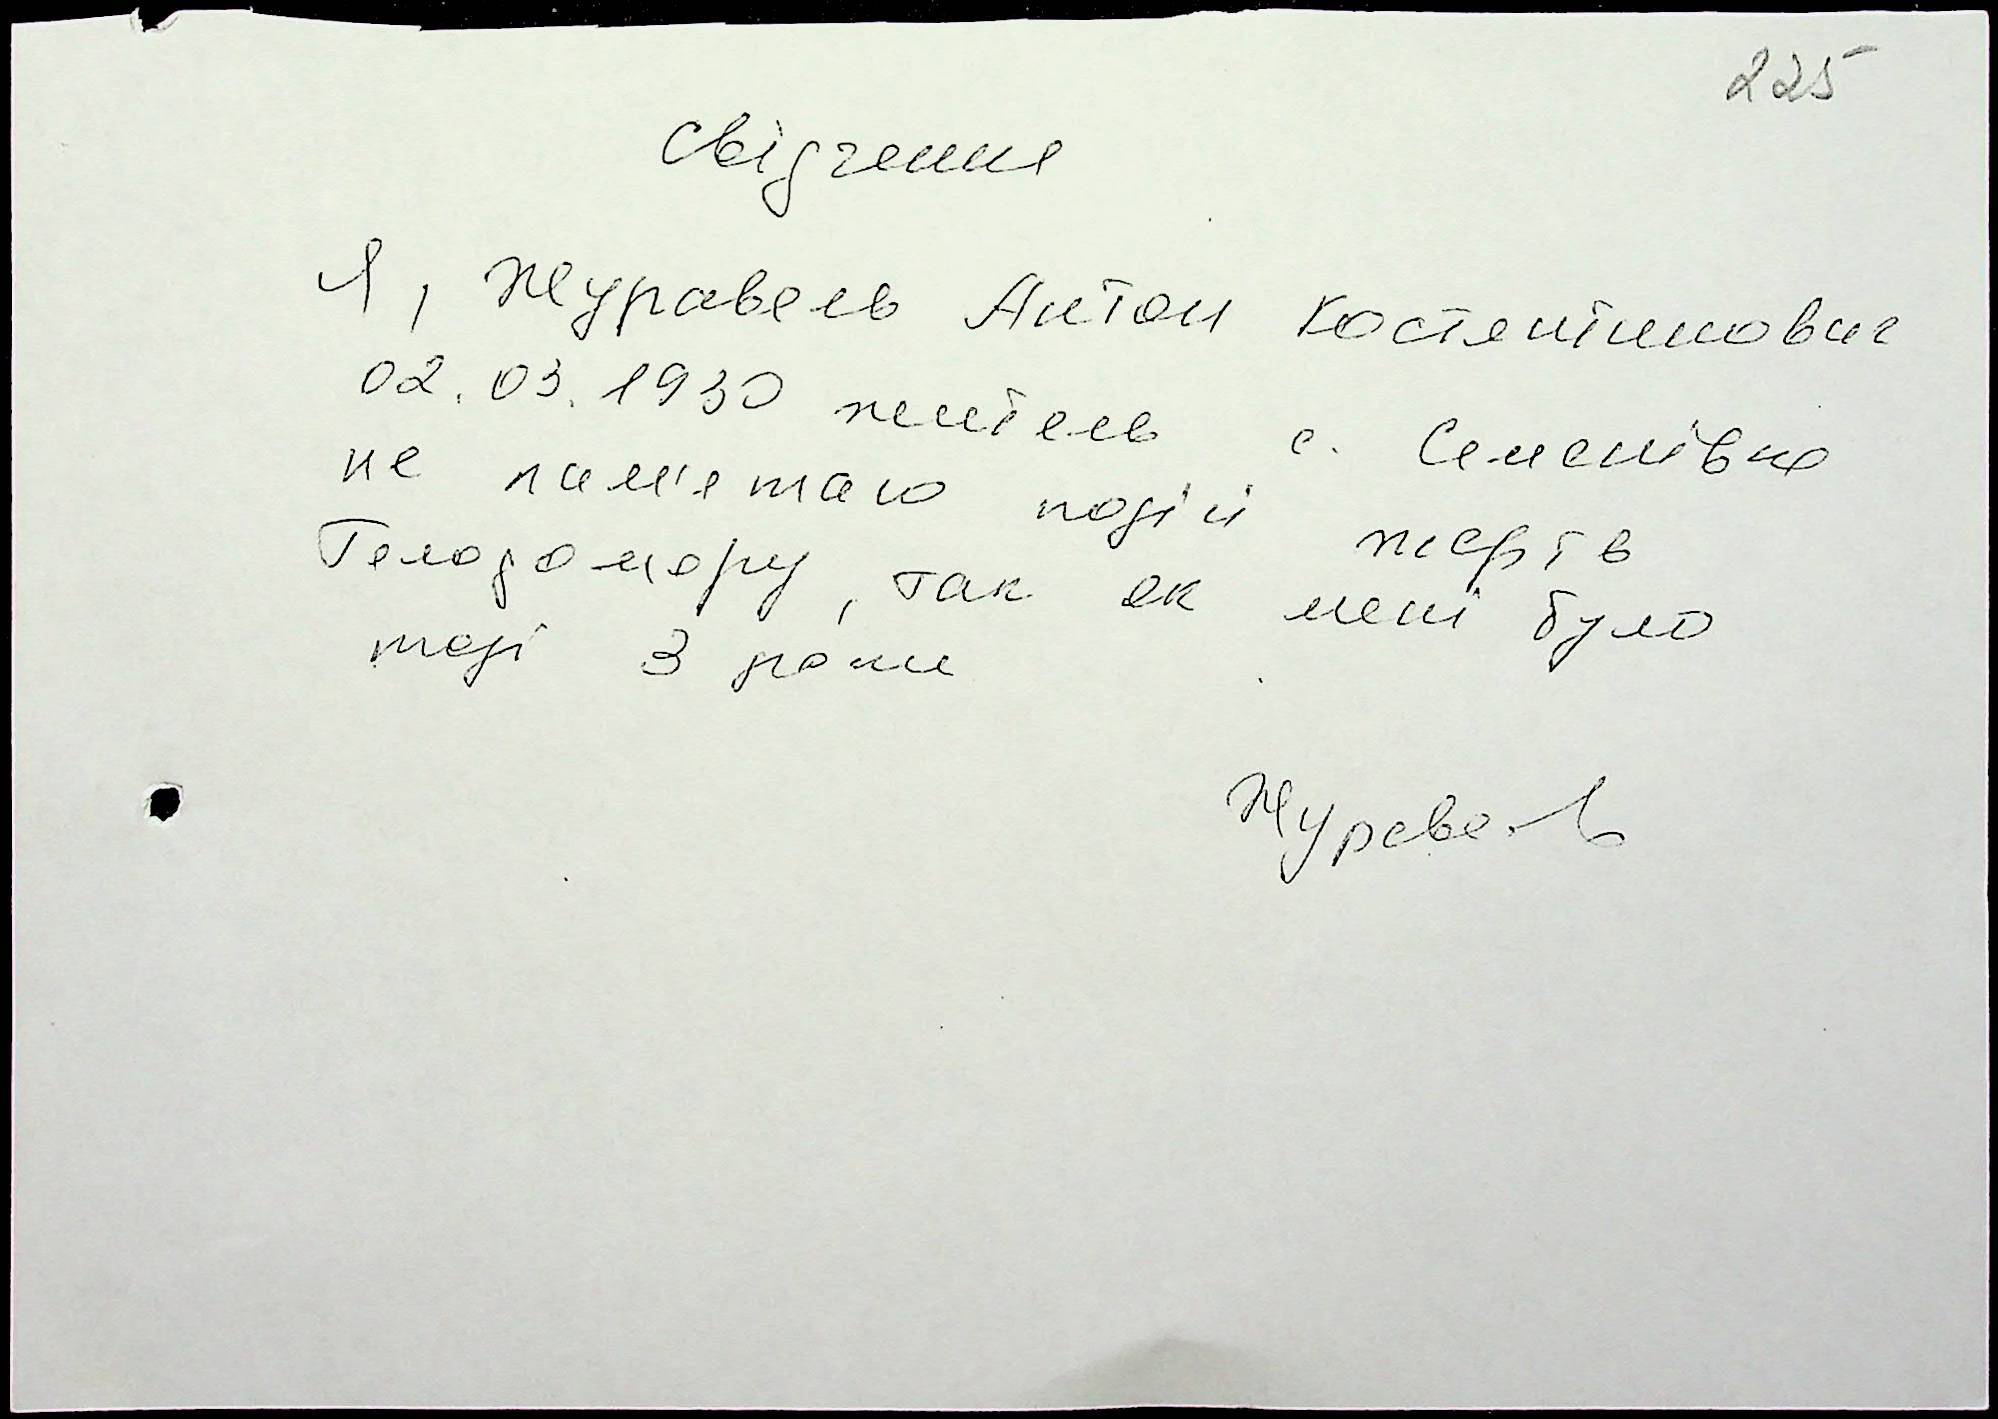 225
Свідчення
Я, Журавель Антон Костянтинович
02.03.1930 житель с. Семенівка
не пам'ятаю подій жертв
Голодомору, так як мені було
тоді 3 роки
Журавель